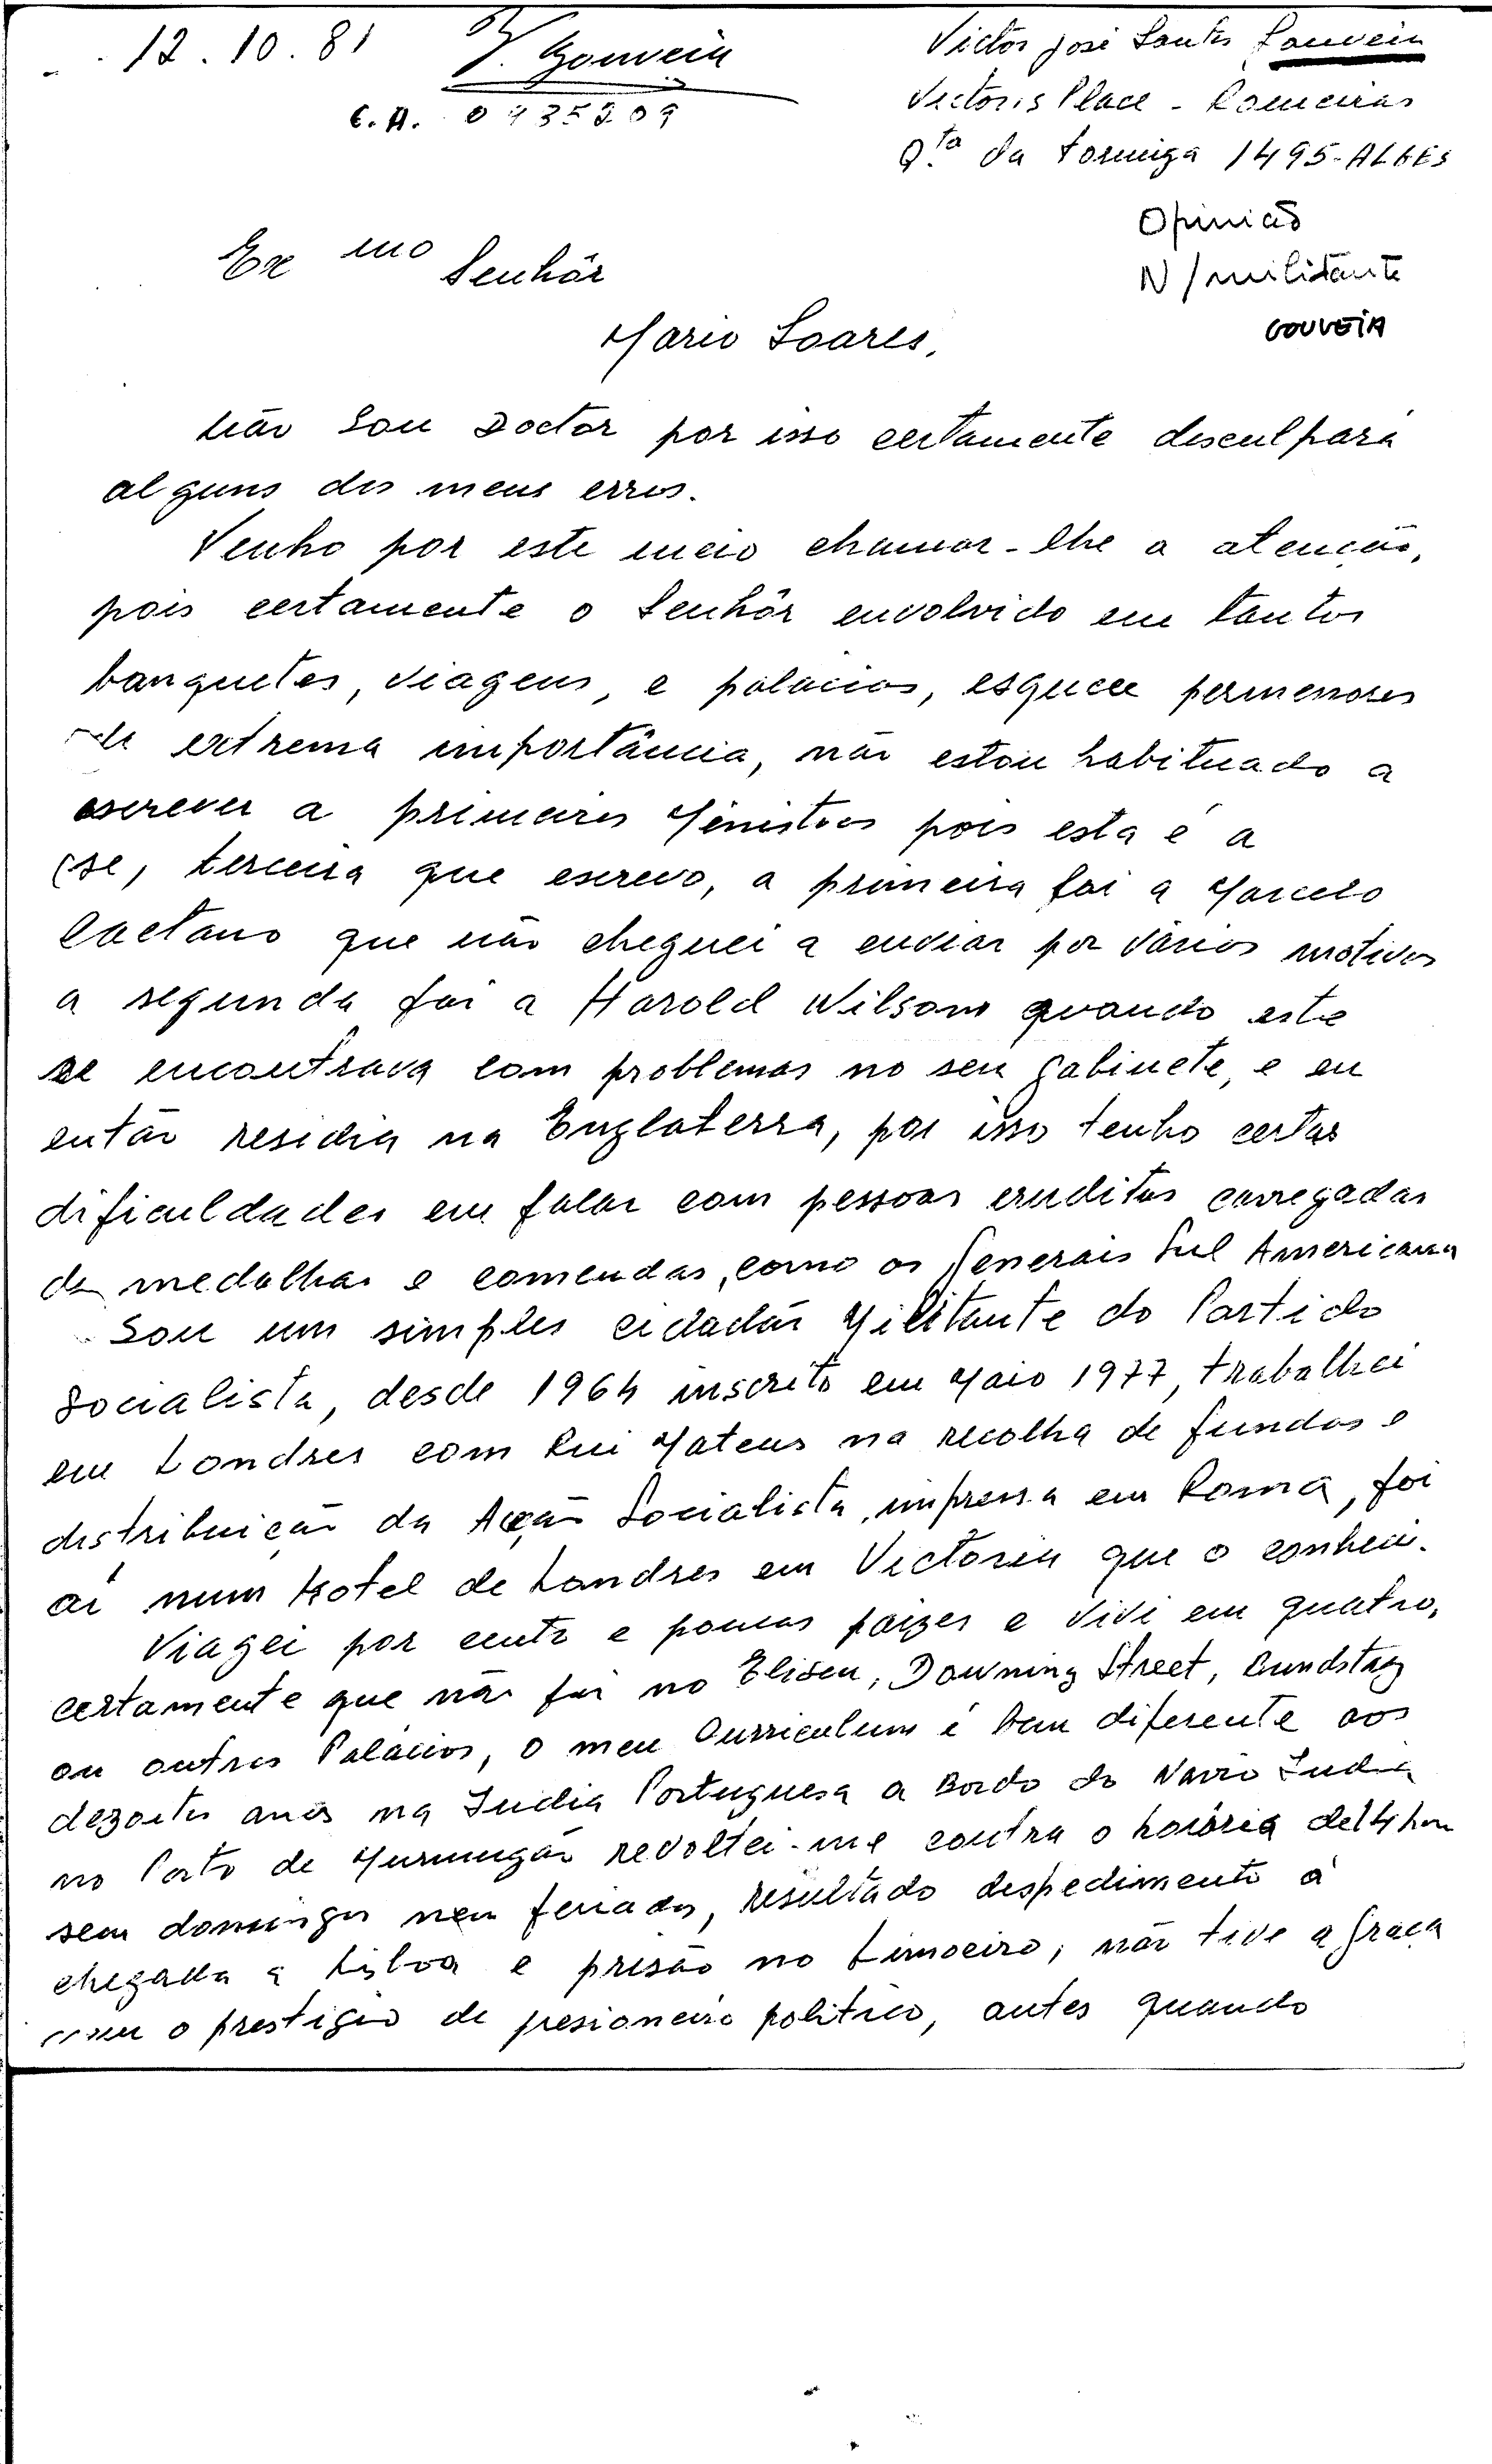 12.10.81
V. Gouveia
Victor José Santos Gouveia
Victoris Place - Romeiras
Q.ta da Formiga 1495-ALGÉS
Opinião
N/militante
GOUVEIA
Ex mo Senhôr
Mario Soares,
Não sou Doctor por isso certamente desculpará
alguns dos meus erros.
Venho por este meio chamar-lhe a atenção,
pois certamente o Senhôr envolvido em tantos
banquetes, viagens, e palacios, esquece permenores
de extrema importância, não estou habituado a
escrever a primeiros Ministros pois esta é a
terceira que escrevo, a primeira foi a Marcelo
Caetano que não cheguei a enviar por vários motivos
a segunda foi a Harold Wilsom quando este
se encontrava com problemas no seu gabinete, e eu
então residia na Englaterra, por isso tenho certas
dificuldades em falar com pessoas eruditas carregadas
de medalhas e comendas, como os Generais Sul Americana
Sou um simples cidadão Militante do Partido
Socialista, desde 1964 inscrito em Maio 1977, trabalhei
em Londres com Rui Mateus na recolha de fundos e
distribuição da Acção Socialista, impressa em Roma, foi
aí num Hotel de Londres em Victoria que o conheci.
Viagei por cento e poucos paizes e vivi em quatro,
certamente que não foi no Eliseu, Downing Street, Bundstag
ou outros Palácios, o meu Curriculum é bem diferente aos
dezoito anos na India Portuguesa a Bordo do Navio India
no Porto de Murmugão revoltei-me contra o horário de 14 hor
sem domingos nem feriados, resultado despedimento á
chegada a Lisboa e prisão no Limoeiro, não tive a graça
nem o prestigio de presioneiro politico, antes quando